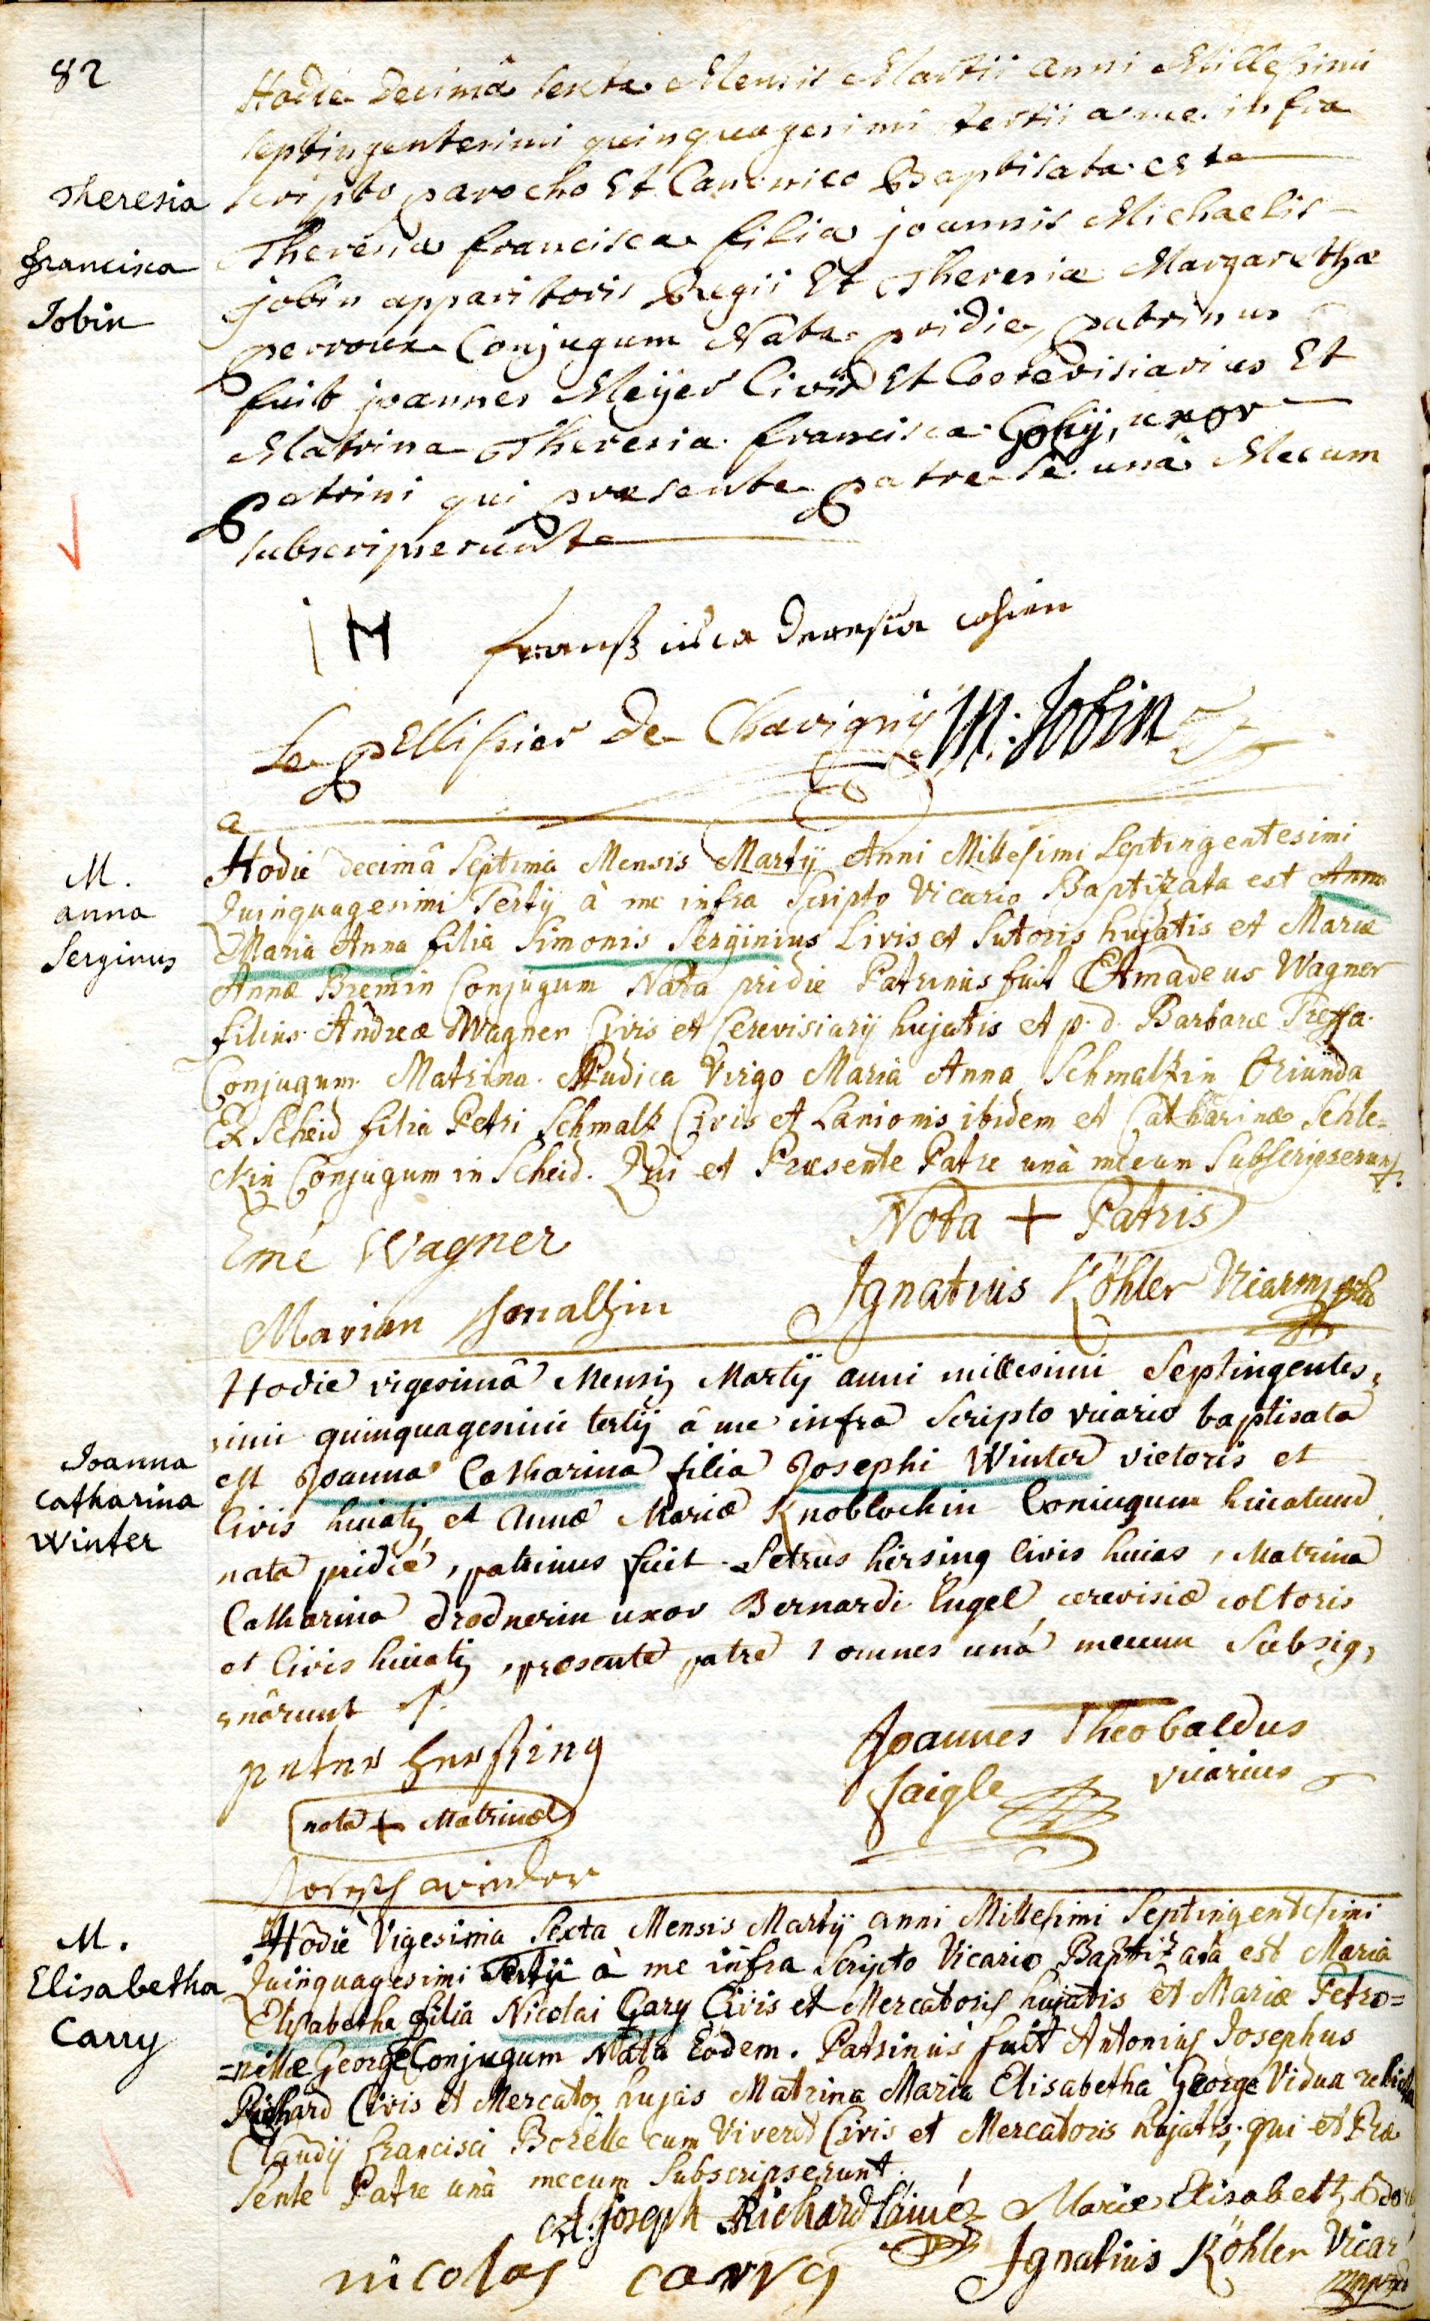 82
Hodie decimâ sexta Mensis Martii anni Millesimi
septingentesimi quinquagesimi tertii a me infra
scripto parocho Et Canonico Baptisata est
Theresia
Theresia francisca filia joannis Michaelis
francisca
jobin apparitoris Regii Et Theresiæ Margarethæ
Jobin
perroux Conjugum Nata pridie, patrinus
fuit joannes Meÿer Civis Et Cerevisiarius Et
Matrina Theresia francisca Gohÿ, uxor
patrini qui præsente patre se unâ Mecum
subscripserunt
M
Le pellissier De Chavignÿ M. Jobin
Hodie decimâ Septima Mensis Martÿ Anni Millesimi Septingentesimi
M.
Quinquagesimi Tertÿ à me infra Scripto Vicario Baptizata est Anna
anna
Maria Anna filia Simonis Serginius Civis et Sutoris hujatis et Mariæ
Serginus
Annæ Bremin Conjugum Nata pridie Patrinus fuit Amadeus Wagner
filius Andreæ Wagner Civis et Cerevisiarÿ hujatis et p. d. Barbaræ Treffa
Conjugum. Matrina Pudica Virgo Maria Anna Schmaltzin Oriunda
Ex Scheid filia Petri Schmaltz Civis et Lanionis ibidem et Catharinæ Schle=
ckin Conjugum in Scheid. Qui et Præsente Patre unà mecum Subscripserunt.
Nota + Patris
Emé Wagner
Ignatius Köhler Vicarius
Marian Schmaltzin
Hodie vigesimâ Mensis Martÿ anni millesimi Septingentes,
simi quinquagesimi tertÿ â me infra Scripto vicario baptisata
Joanna
est Joanna Catharina filia Josephi Winter vietoris et
Catharina
Civis huiatis et Annæ Mariæ Knoblochin Coniugum huiatum
Winter
nata pridie, patrinus fuit Petrus hirsing Civis huias, Matrina
Catharina drodnerin uxor Bernardi Engel cerevisiæ coctoris
et Civis huiatis, præsente patre, omnes unâ mecum Subsig,
nârunt
Joannes Theobaldus
peter hersing
Jaigle vicarius
nota + Matrinæ
Joseph winder
Hodie Vigesima Sexta Mensis Martÿ anni Millesimi Septingentesimi
M.
Quinquagesimi Tertÿ à me infra Scripto Vicario Baptizata est Maria
Elisabetha
Elisabetha filia Nicolai Cary Civis et Mercatoris hujatis et Mariæ Petro=
Carry
=nillæ George Conjugum Nata Eodem. Patrinus fuit Antonius Josephus
Richard Civis et Mercator hujas Matrina Maria Elisabetha George Vidua relicta
Claudÿ francisci Borelle cum Viveret Civis et Mercatoris hujatis; qui et Præ
sente Patre unà mecum Subscripserunt.
A: joseph Richard l'ainé Marie Elisabett
nicolas carry Ignatius Köhler Vicar